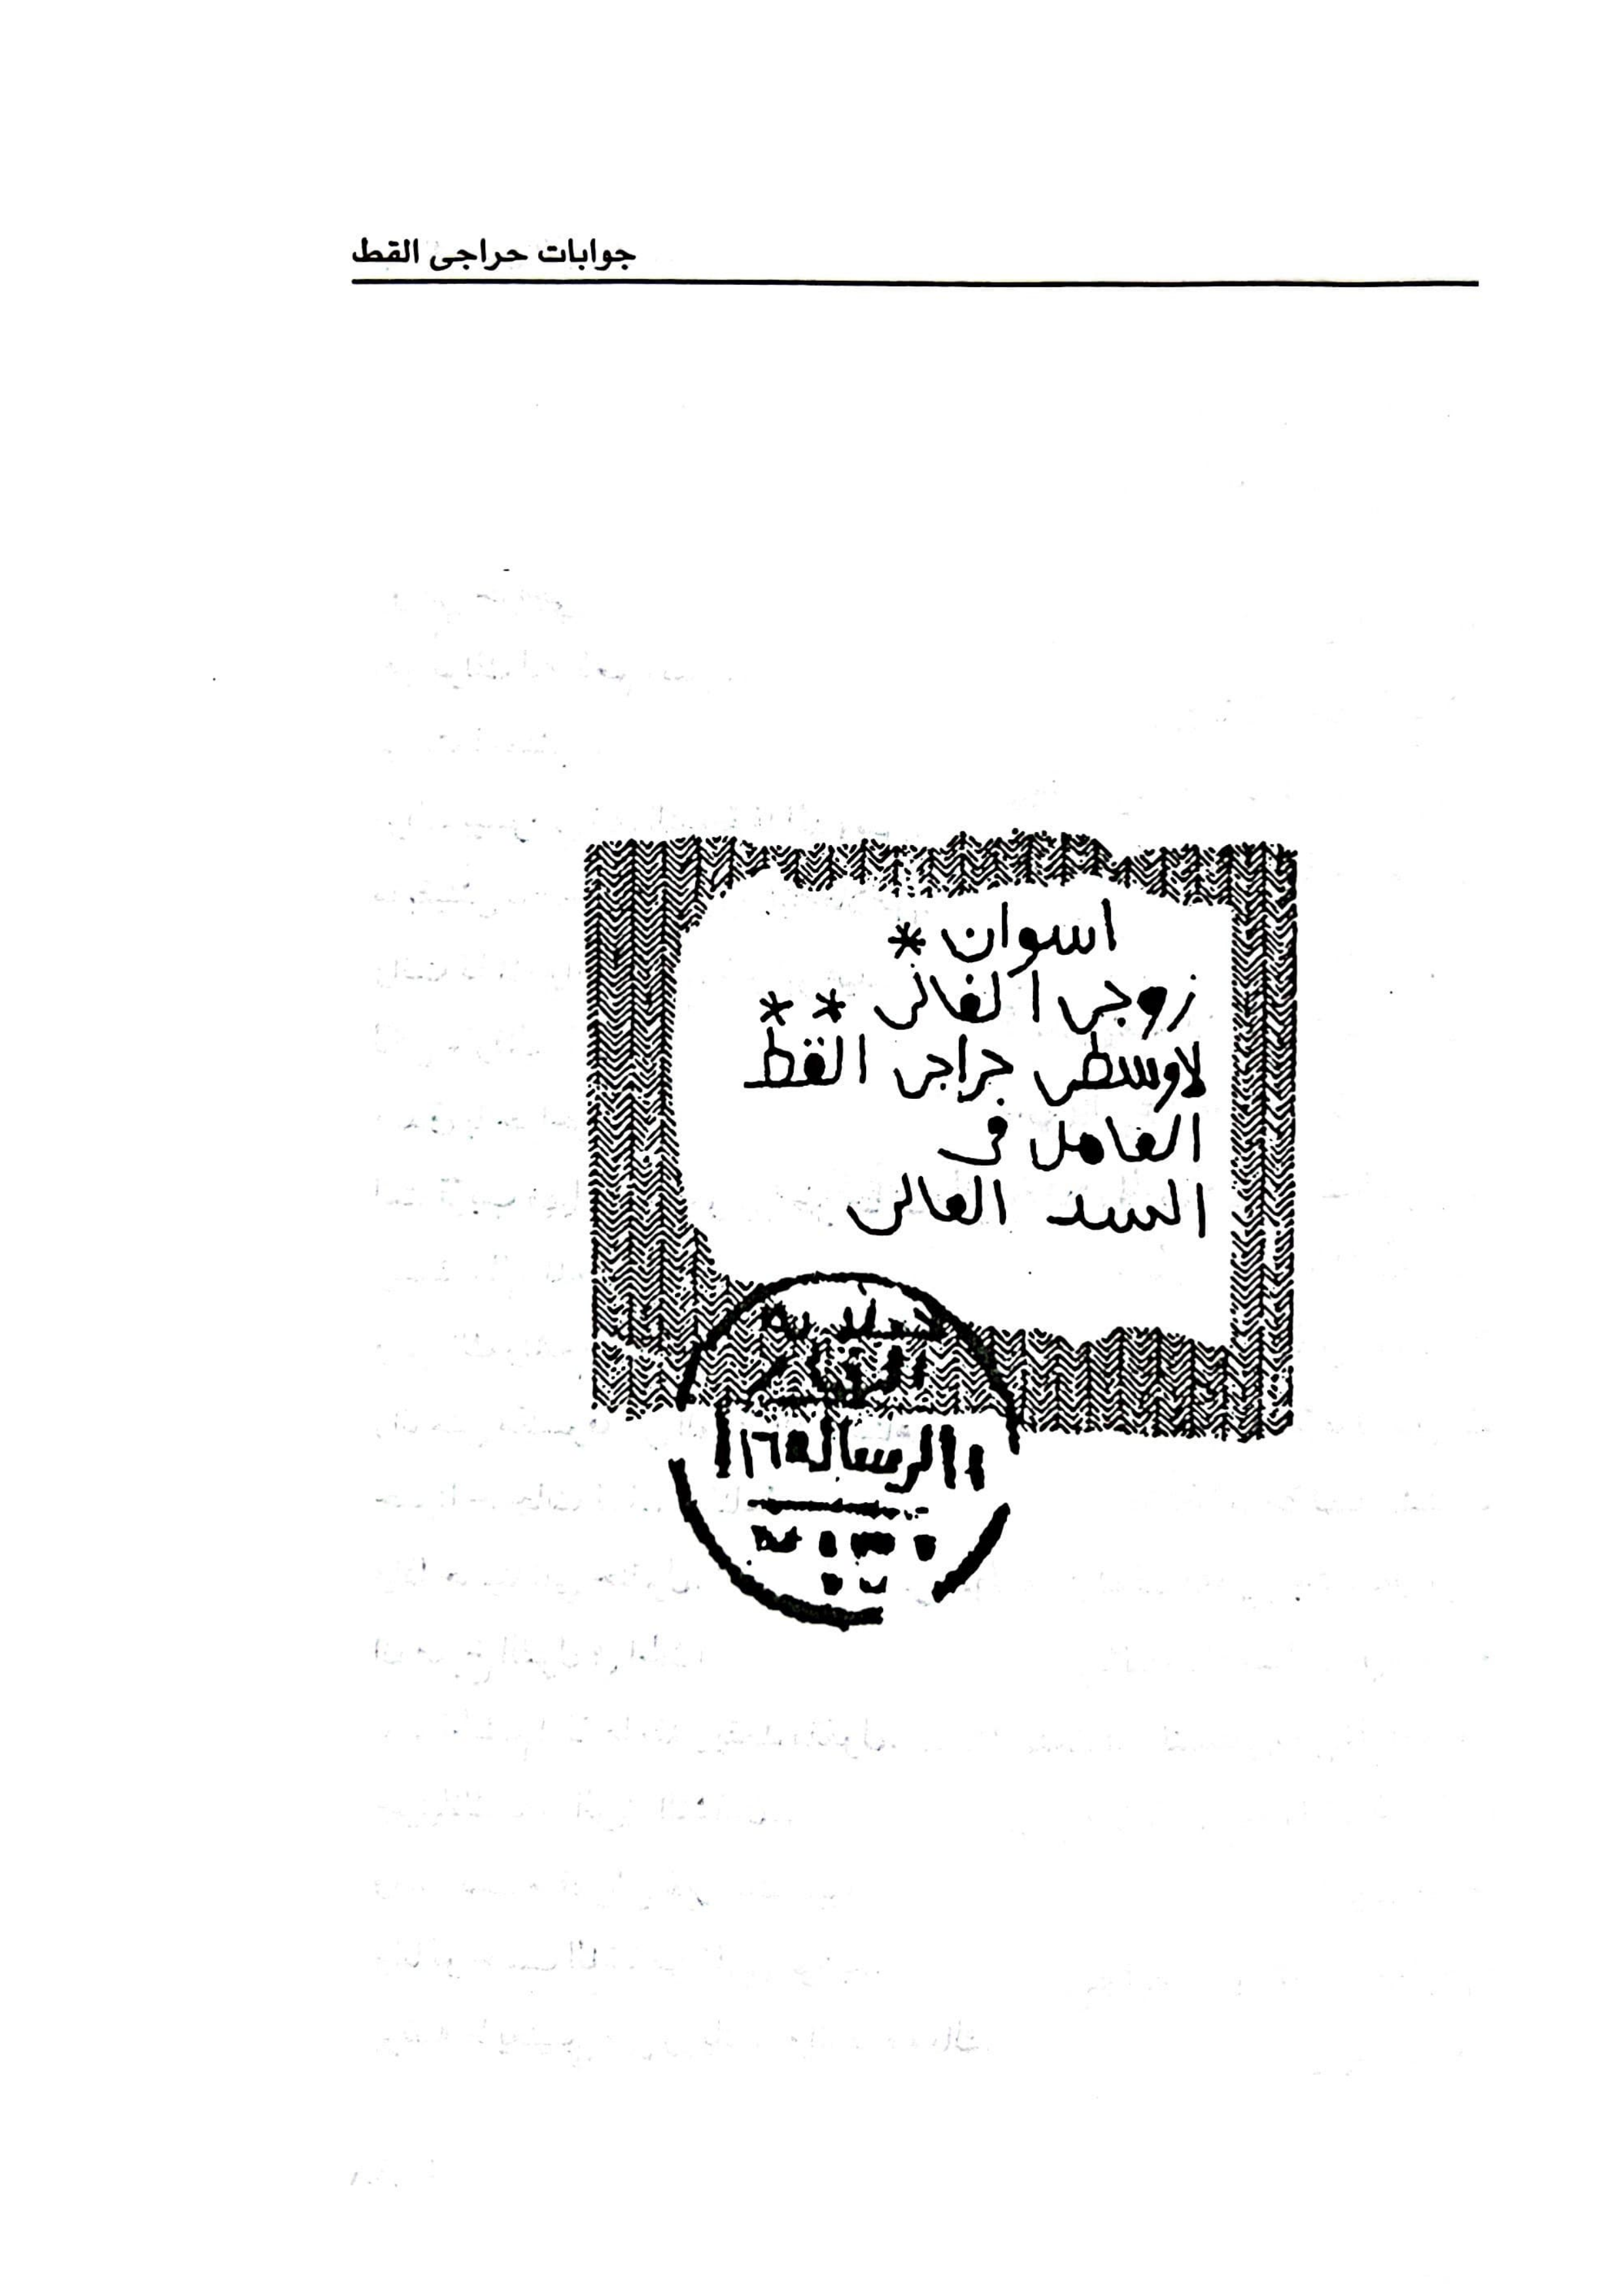 جوابات حراجى القط
اسوان *
زوجى الغالى **
لاوسطى حراجى القط
العامل فى
السد العالى
الرسالة ١٦